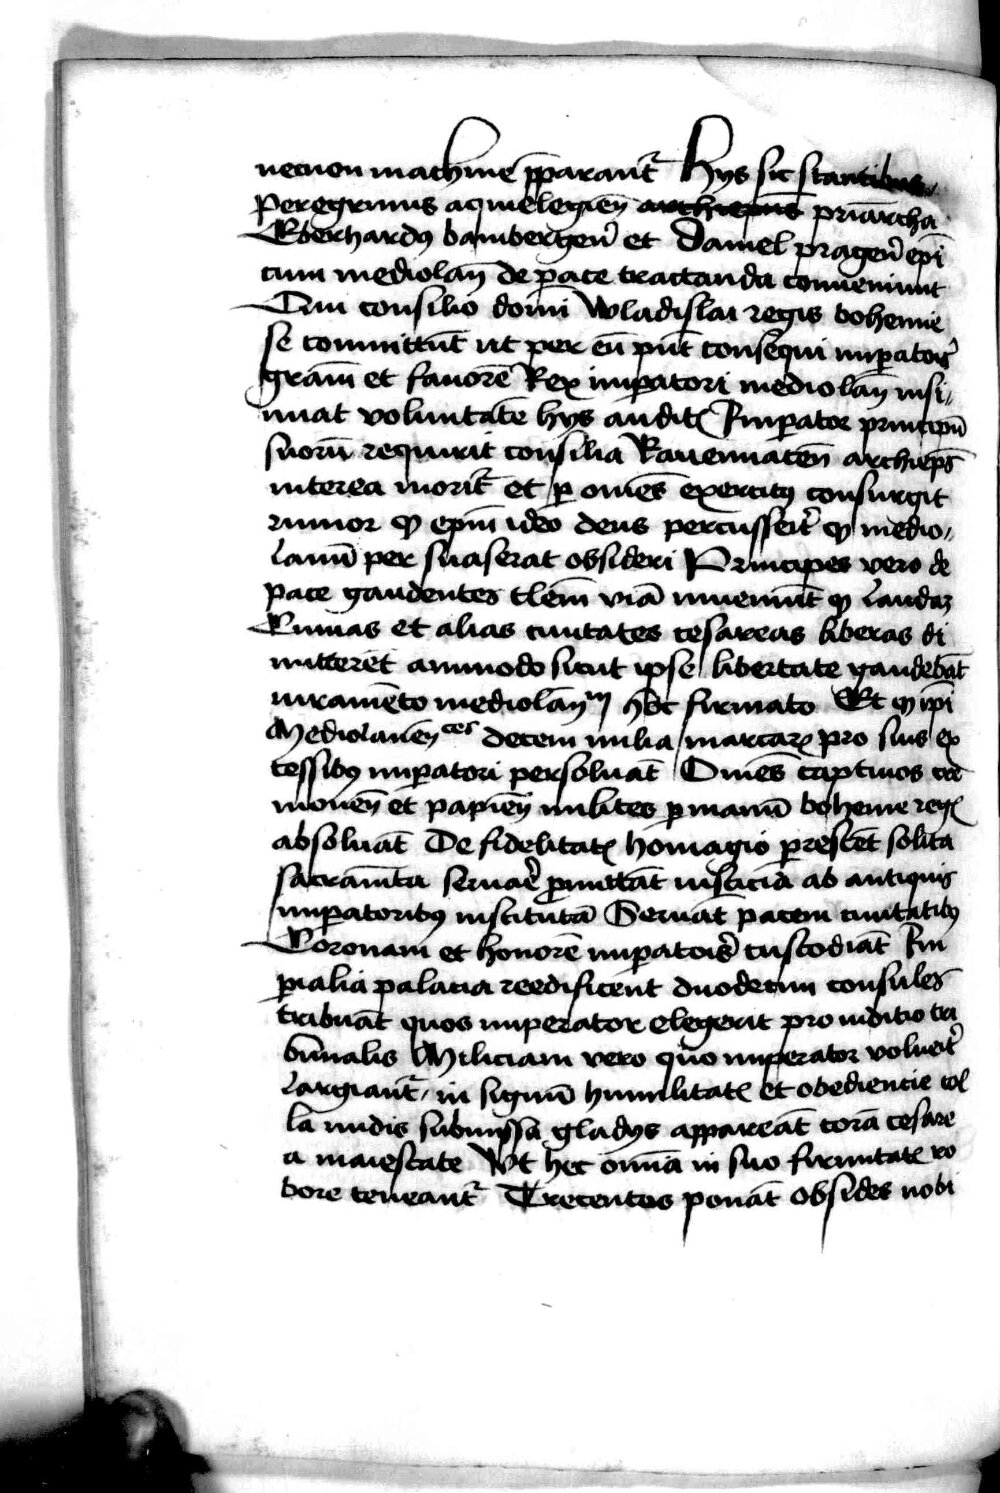 necnon machine p̲parant᷑ Hys sic stantibus
Peregrinus aquielegien̄ archiep̄us priarcha
Eberhardꝰ bambergen̄ et Daniel pragen̄ ep̄i
cum mediolan̄ de pace tractanda conueniunt
Qui consilio domī Wladislai regis bohemie
se committūt ut per eū p̄nt consequi imꝑatoris
grām et fauorē Rex imꝑatori mediolan̄ insi⸗
nuat voluntatē hys auditꝭ Imꝑator principū
suorū requirit consilia Rauennaten̄ archiep̄s
interea morit᷑ et ꝑ om̄es exercitꝰ consurgit
rumor ꝙ ep̄m ideo deus percusserit ꝙ medio⸗
lanū per suaserat obsideri Principes vero de
pace gaudentes tlēm viā inueniūt ꝙ laudaꝫ
Cumas et alias ciuitates cesareas liberas di
mitterēt ammodo sicut ipse libertate gaudebāt
iuramēto mediolan̄ m hoc firmato Et ꝙ ip̄i
Mediolanen̄ ces decem milia marcaꝝ pro suis ex
cessibꝰ imꝑatori persoluāt Om̄es captiuos cre
monen̄ et papien̄ milites ꝑ manū bohemie regꝭ
absoluāt De fidelitatꝭ homagio p̄rescēt solita
sacramēta seruare ꝑmittāt iusticia ab antiquis
imꝑatoribꝰ institutā Seruāt pacem ciuitatibꝰ
Coronam et honorē imꝑatoris custodiāt Im
ꝑialia palacia reedificent duodecim consules
tribuāt quos imperator elegerit pro iuditio tri
būnalis Miliciam vero quo imperator voluerit
largiant᷑ in signū humilitatꝭ et obediencie col
la nudis submissa gladijs appareāt corā cesare
a maiestate Vt hec om̄ia in suo firmitatꝭ ro
bore teneant᷑ Trecentos ponāt obsides nobi